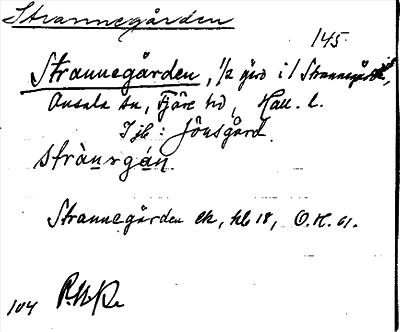 Strannegården
145.
Strannegården, 1/2 gård i 1 Strannegård,
Onsala sn, Fjäre hd, Hall. l.
I jb: Jönsgård.
stràn​sgán
Strannegården ek, kb 18, O.H. 61.
104